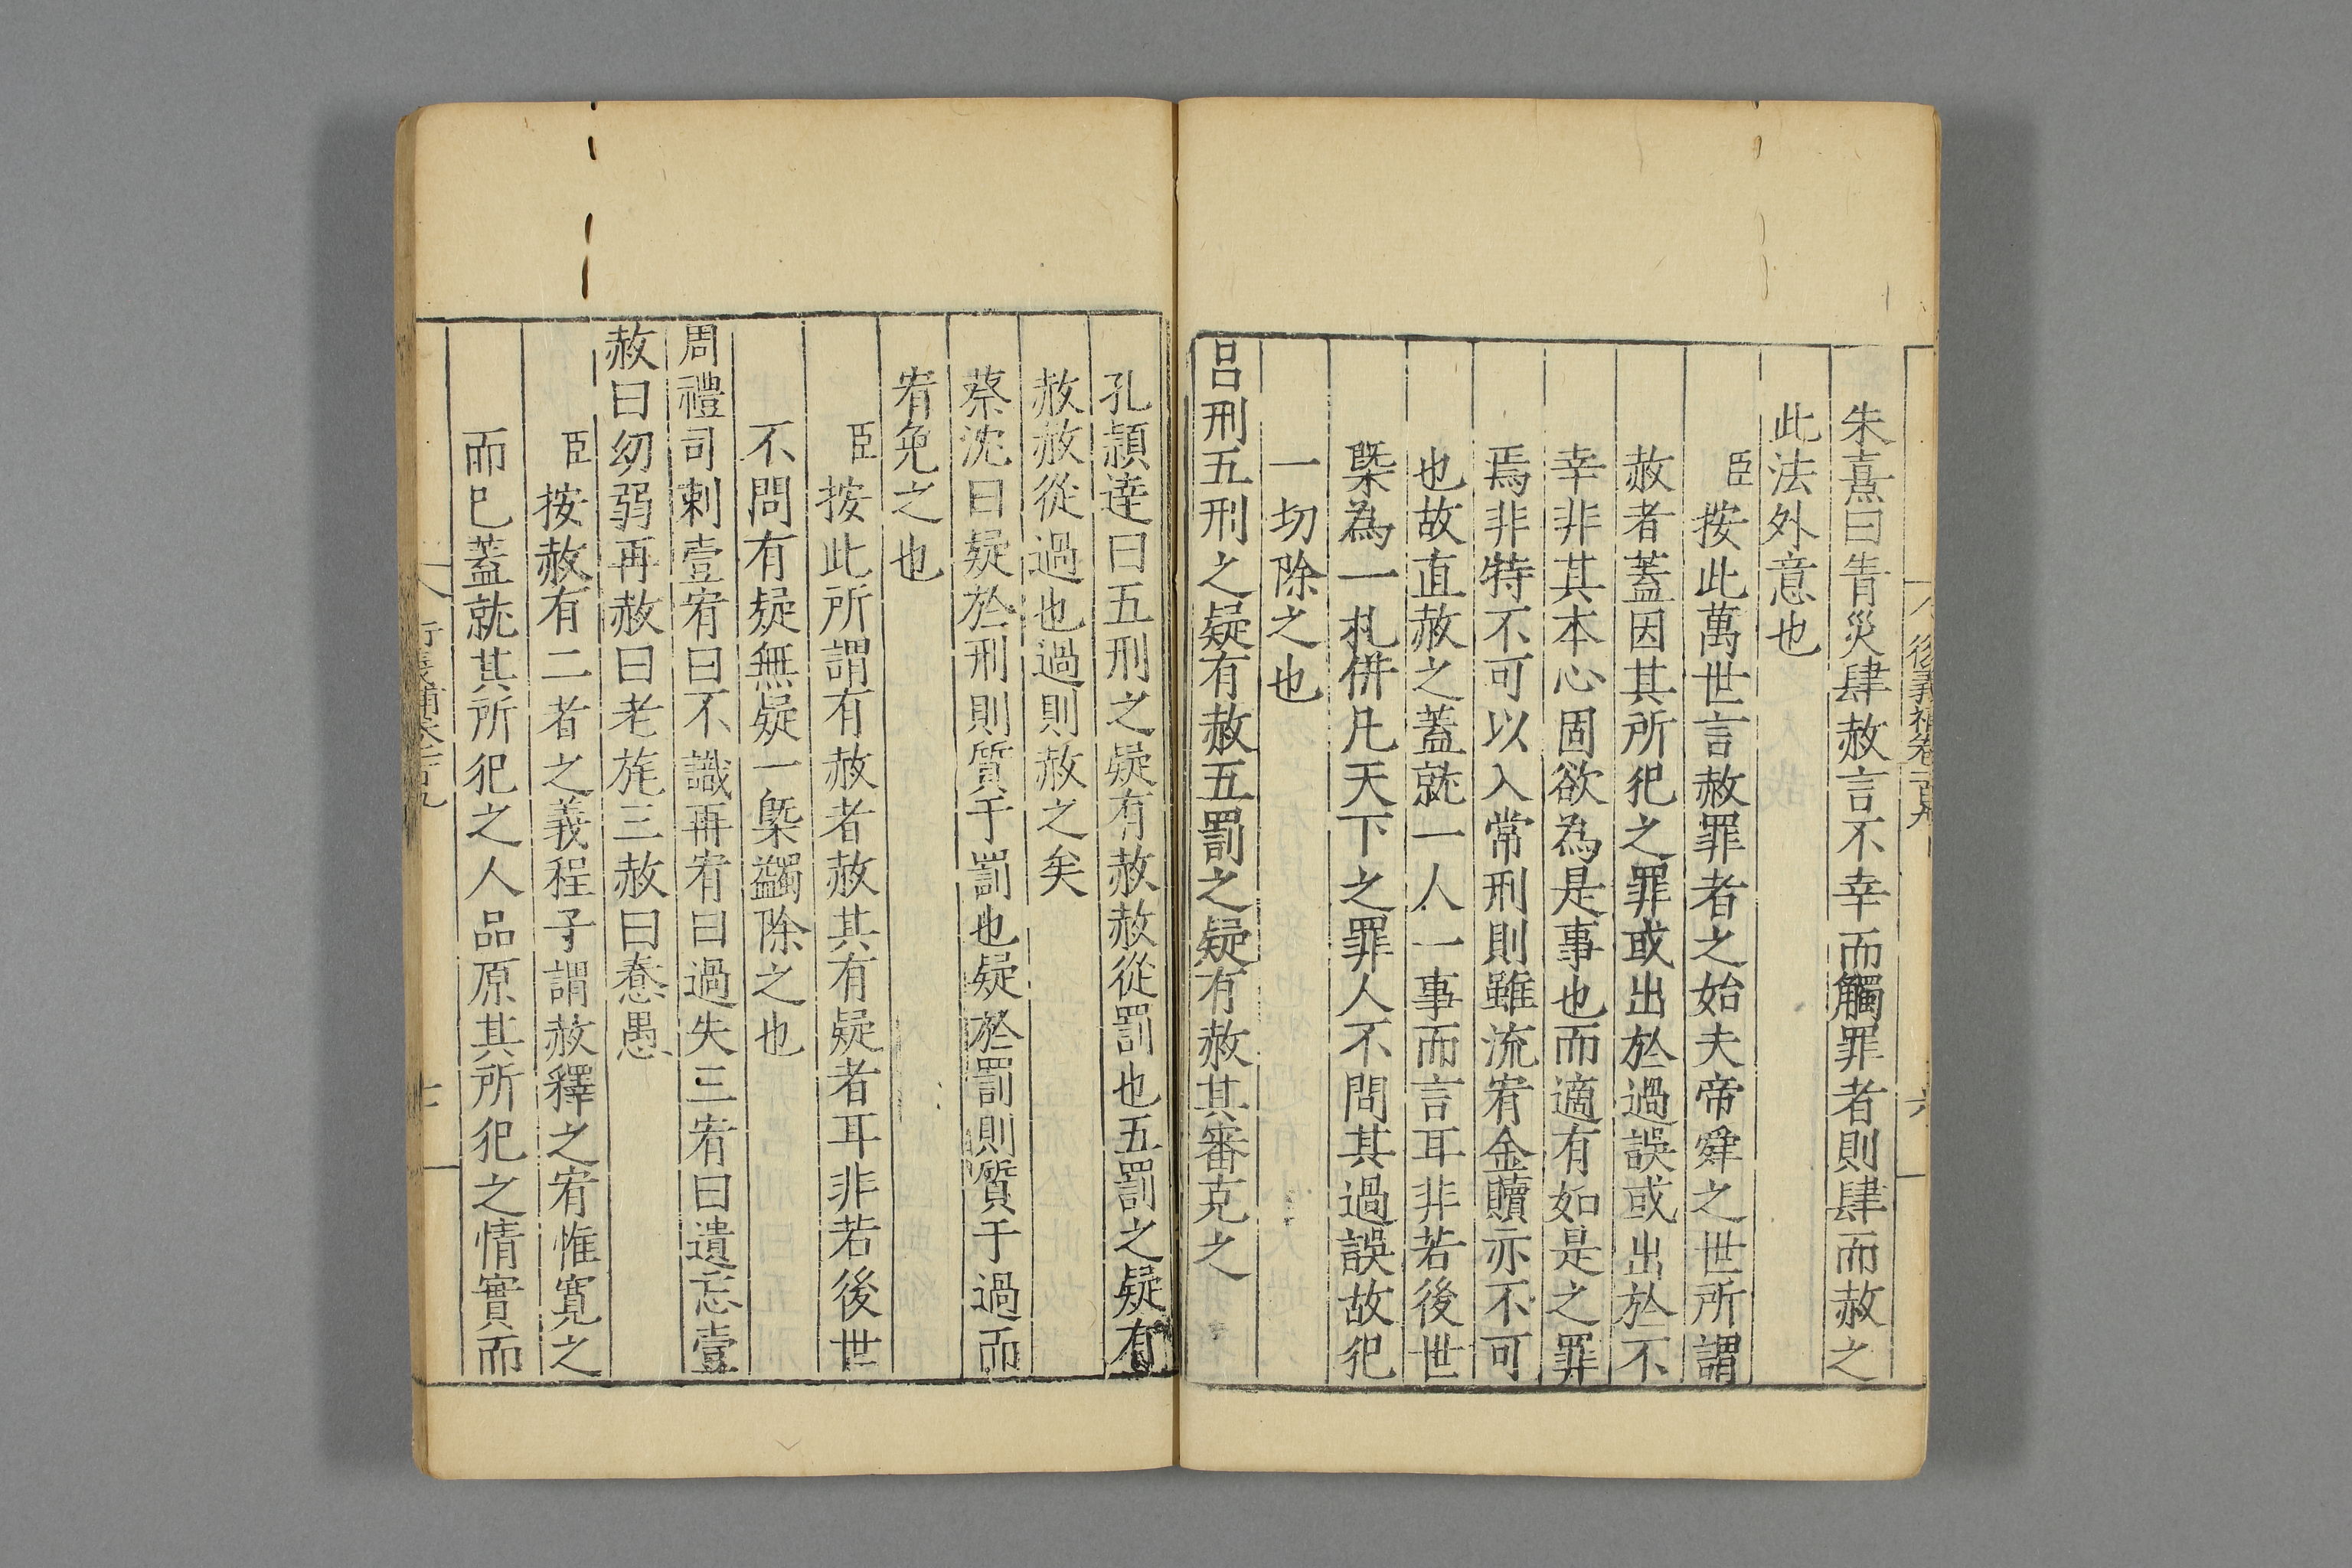 朱熹曰眚災肆赦言不幸而觸罪者則肆而赦之
此法外意也
臣按此萬世言赦罪者之始夫帝舜之世所謂
赦者蓋因其所犯之罪或出於過誤或出於不
幸非其本心固欲為是事也而適有如是之罪
焉非特不可以入常刑則雖流宥金贖亦不可
也故直赦之蓋就一人一事而言耳非若後世
槩為一札併凡天下之罪人不問其過誤故犯
一切除之也
呂刑五刑之疑有赦五罰之疑有赦其審克之
孔頴達曰五刑之疑有赦赦從罰也五罰之疑有
赦赦從過也過則赦之矣
蔡沈曰疑於刑則質于罰也疑於罰則質于過而
宥免之也
臣按此所謂有赦者赦其有疑者耳非若後世
不問有疑無疑一槩蠲除之也
周禮司剌壹宥曰不識再宥曰過失三宥曰遺忘壹
赦曰幼弱再赦曰老旄三赦曰惷愚
臣按赦有二者之義程子謂赦釋之宥惟寬之
而已蓋就其所犯之人品原其所犯之情實而